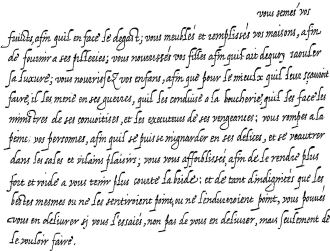 vous semés vos
fruicts, afin quil en face le degast; vous meublés et remplissés vos maisons, afin
de fournir a ses pilleries; vous nourrissés vos filles afin quil ait de quoy saouler
sa luxure; vous nourrissez vos enfans, afin que pour le mieulx quil leur scauroit
faire, il les mene en ses guerres, quil les conduise a la boucherie, quil les face les
ministres de ses convoitises, et les executeurs de ses vengeances; vous rompés a la
peine vos personnes, afin quil se puisse mignarder en ses delices, et se veautrer
dans les sales et vilains plaisirs; vous vous affoiblissés, afin de le rendre plus
fort et roide a vous tenir plus courte la bride: et de tant dindignités que les
bestes mesmes ou ne les sentiroient point, ou ne lendureroient point, vous pouvés
vous en deliurer si vous lessaiés, non pas de vous en deliurer, mais seulement de
le vouloir faire.